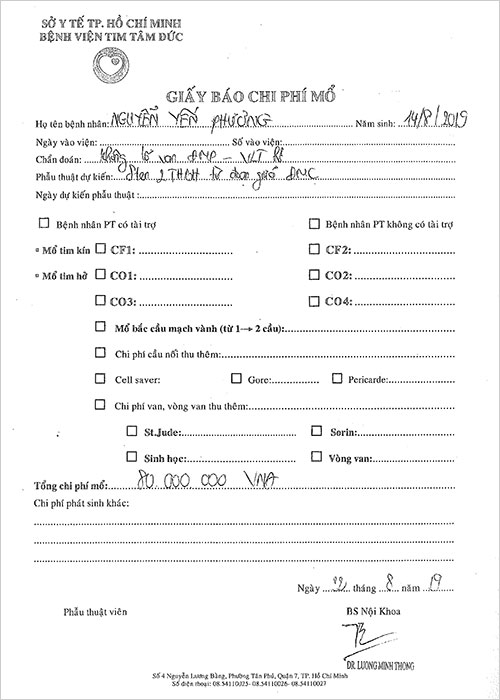 SỞ Y TẾ TP. HỒ CHÍ MINH
BỆNH VIỆN TIM TÂM ĐỨC
GIẤY BÁO CHI PHÍ MỔ
Họ tên bệnh nhân: NGUYỄN YẾN PHƯƠNG Năm sinh: 14/8/2019
Ngày vào viện: Số vào viện:
Chẩn đoán: không lỗ van ĐMP - VLT
Phẫu thuật dự kiến: Sten 2 THBH từ đoạn giữa ĐMC
Ngày dự kiến phẫu thuật :
Bệnh nhân PT có tài trợ Bệnh nhân PT không có tài trợ
Mổ tim kín CF1: CF2:
Mổ tim hở CO1: CO2:
CO3: CO4:
Mổ bắc cầu mạch vành (từ 1→ 2 cầu):
Chi phí cầu nối thu thêm:
Cell saver: Gore: Pericarde:
Chi phí van, vòng van thu thêm:
St.Jude: Sorin:
Sinh học: Vòng van:
Tổng chi phí mổ: 80.000.000 VNĐ
Chi phí phát sinh khác:
Ngày 22 tháng 8 năm 19
Phẫu thuật viên BS Nội Khoa
DR. LUONG MINH THONG
Số 4 Nguyễn Lương Bằng, Phường Tân Phú, Quận 7, TP. Hồ Chí Minh
Số điện thoại: 08.54110025- 08.54110026- 08.54110027